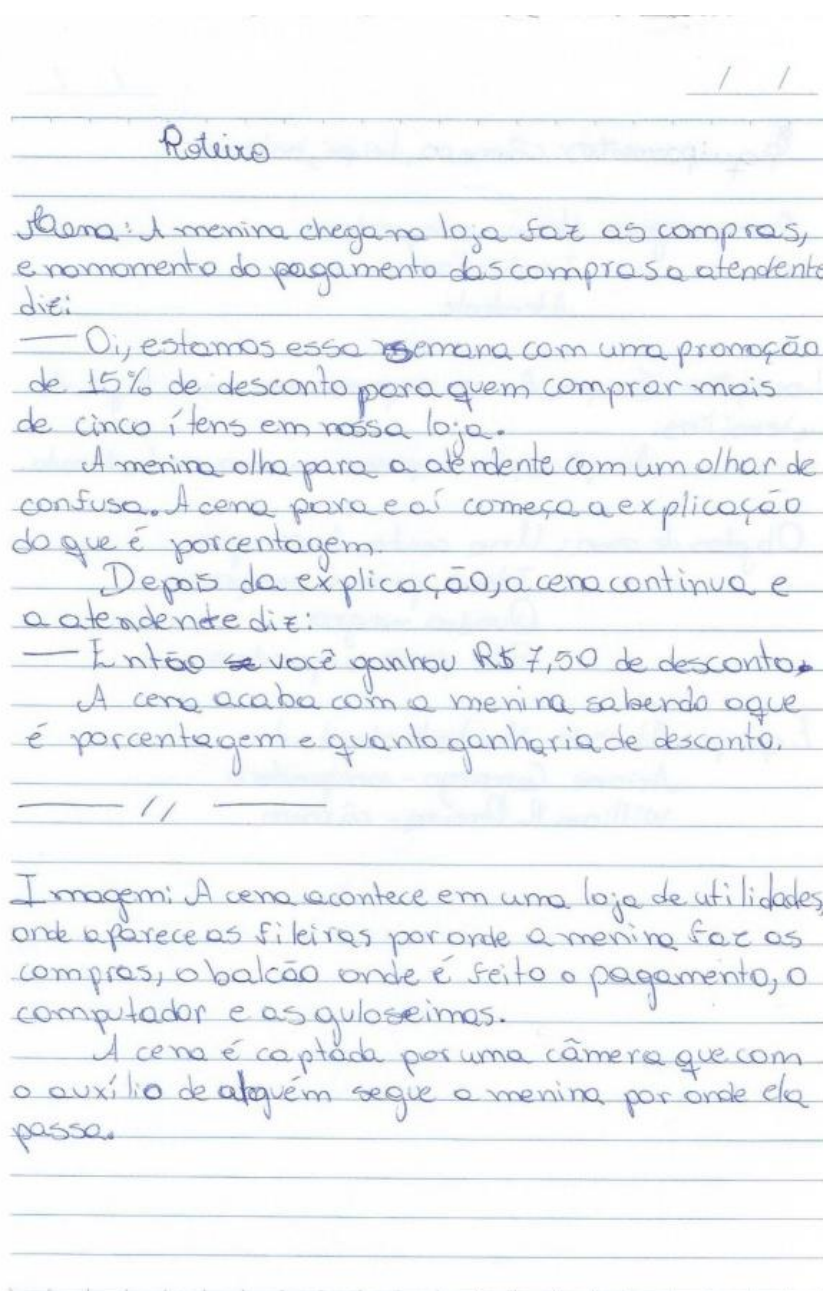 / /
Roteiro
Cena: A menina chega na loja faz as compras,
e no momento do pagamento das compras a atendente
diz:
— Oi, estamos essa semana com uma promoção
de 15% de desconto para quem comprar mais
de cinco ítens em nossa loja.
A menina olha para a atendente com um olhar de
confusa. A cena para e aí começa a explicação
do que é porcentagem.
Depois da explicação, a cena continua e
a atendente diz:
— Então você ganhou R$ 7,50 de desconto.
A cena acaba com a menina sabendo oque
é porcentagem e quanto ganharia de desconto.
— // —
Imagem: A cena acontece em uma loja de utilidades,
onde aparece as fileiras por onde a menina faz as
compras, o balcão onde é feito o pagamento, o
computador e as guloseimas.
A cena é captada por uma câmera que com
o auxílio de alguém segue a menina por onde ela
passa.